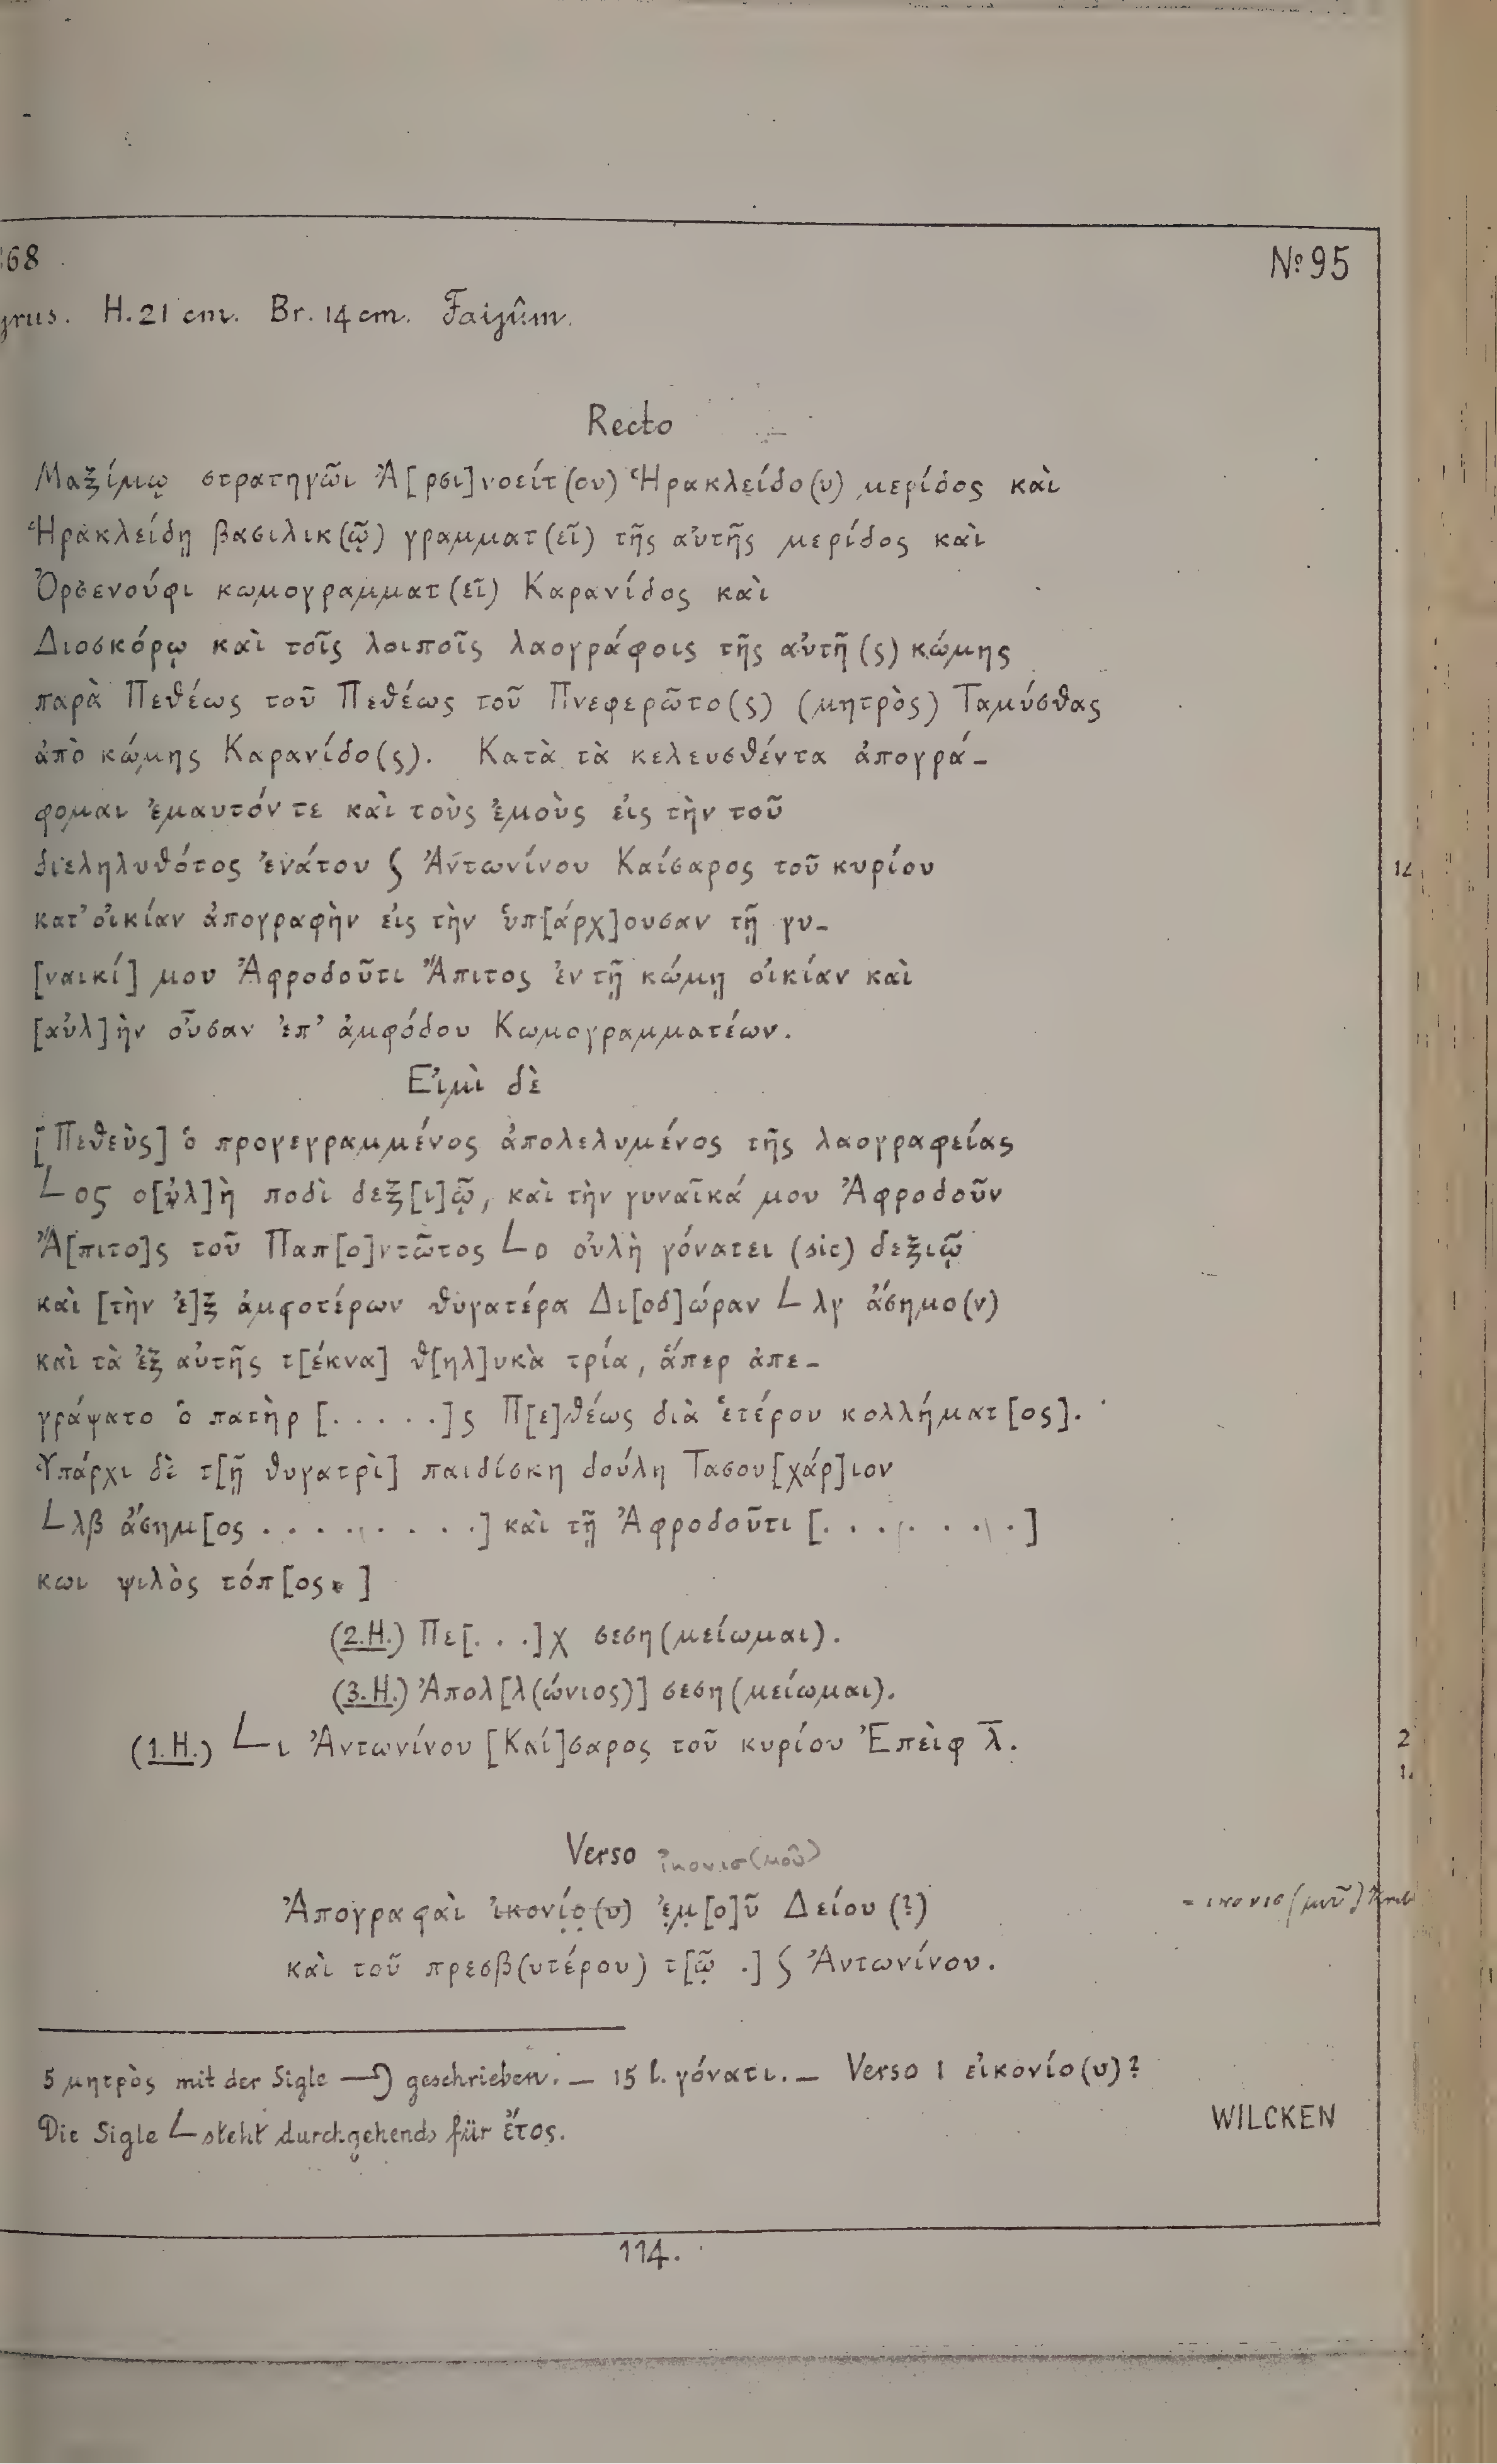 68
№ 95
H. 21 cm. Br. 14 cm. Faijûm.
Recto
Μαξίμῳ στρατηγῶι Ἀ[ρσι]νοείτ(ου) Ἡρακλείδο(υ) μερίδος καὶ
Ἡρακλείδῃ βασιλικ(ῷ) γραμματ(εῖ) τῆς αὐτῆς μερίδος καὶ
Ὀρσενούφι κωμογραμματ(εῖ) Καρανίδος καὶ
Διοσκόρῳ καὶ τοῖς λοιποῖς λαογράφοις τῆς αὐτῆ(ς) κώμης
παρὰ Πεθέως τοῦ Πεθέως τοῦ Πνεφερῶτο(ς) (μητρὸς) Ταμύσθας
ἀπὸ κώμης Καρανίδο(ς). Κατὰ τὰ κελευσθέντα ἀπογρά-
φομαι ἐμαυτόν τε καὶ τοὺς ἐμοὺς εἰς τὴν τοῦ
διεληλυθότος ἐνάτου ϛ Ἀντωνίνου Καίσαρος τοῦ κυρίου
κατ' οἰκίαν ἀπογραφὴν εἰς τὴν ὑπ[άρχ]ουσαν τῇ γυ-
[ναικί] μου Ἀφροδοῦτι Ἄπιτος ἐν τῇ κώμῃ οἰκίαν καὶ
[αὐλ]ὴν οὖσαν ἐπ' ἀμφόδου Κωμογραμματέων.
Εἰμὶ δὲ
[Πεθεὺς] ὁ προγεγραμμένος ἀπολελυμένος τῆς λαογραφείας
L ος ο[ὐλ]ὴ ποδὶ δεξ[ι]ῷ, καὶ τὴν γυναῖκά μου Ἀφροδοῦν
Ἄ[πιτο]ς τοῦ Παπ[ο]ντῶτος L ο οὐλὴ γόνατει (sic) δεξιῷ
καὶ [τὴν ἐ]ξ ἀμφοτέρων θυγατέρα Δι[οδ]ώραν L λγ ἄσημο(ν)
καὶ τὰ ἐξ αὐτῆς τ[έκνα] θ[ηλ]υκὰ τρία, ἅπερ ἀπε-
γράψατο ὁ πατὴρ [. . . . .]ς Π[ε]θέως διὰ ἑτέρου κολλήματ[ος].
Ὑπάρχι δὲ τ[ῇ θυγατρὶ] παιδίσκη δούλη Τασου[χάρ]ιον
L λβ ἄσημ[ος . . . . . . . . .] καὶ τῇ Ἀφροδοῦτι [. . . . . . . .]
κωι ψιλὸς τόπ[ος. ]
(2. H.) Πε[. . .]χ σεση(μείωμαι).
(3. H.) Ἀπολ[λ(ώνιος)] σεση(μείωμαι).
(1. H.) L ι Ἀντωνίνου [Καί]σαρος τοῦ κυρίου Ἐπεὶφ λ̅.
Verso ἰκονισ(μοῦ)
Ἀπογραφαὶ ἰκονίο̣(υ) ἐ̣μ̣[ο]ῦ Δείου (?)
= ικονισ(μοῦ)
καὶ τοῦ πρεσβ(υτέρου) τ[ῷ .] ϛ Ἀντωνίνου.
5 μητρὸς mit der Sigle geschrieben. — 15 l. γόνατι. — Verso 1 εἰκονίο(υ)?
Die Sigle L steht durchgehends für ἔτος.
WILCKEN
114.